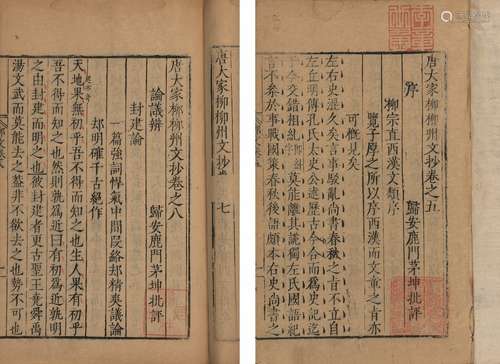 唐大家柳柳州文抄卷之五
歸安鹿門茅坤批評
序
柳宗直西漢文類序
覽子厚之所以序西漢而文章之旨亦
可概見矣
左右史混久矣言事駁亂尚書春秋之旨不立自
左丘明傳孔氏太史公述歷古今合而爲史迄
于今交錯相糺莫能離其說獨左氏國語紀
言不參於事戰國策春秋後語頗本右史尚書之
唐大家柳柳州文抄
七
唐大家柳柳州文抄卷之八
歸安鹿門茅坤批評
論議辨
封建論
一篇強詞悍氣中間段絡却精爽議論
却明確千古絕作
天地果無初乎吾不得而知之也生人果有初乎
吾不得而知之也然則孰爲近曰有初爲近孰明
之由封建而明之也彼封建者更古聖王堯舜禹
湯文武而莫能去之蓋非不欲去之也勢不可也